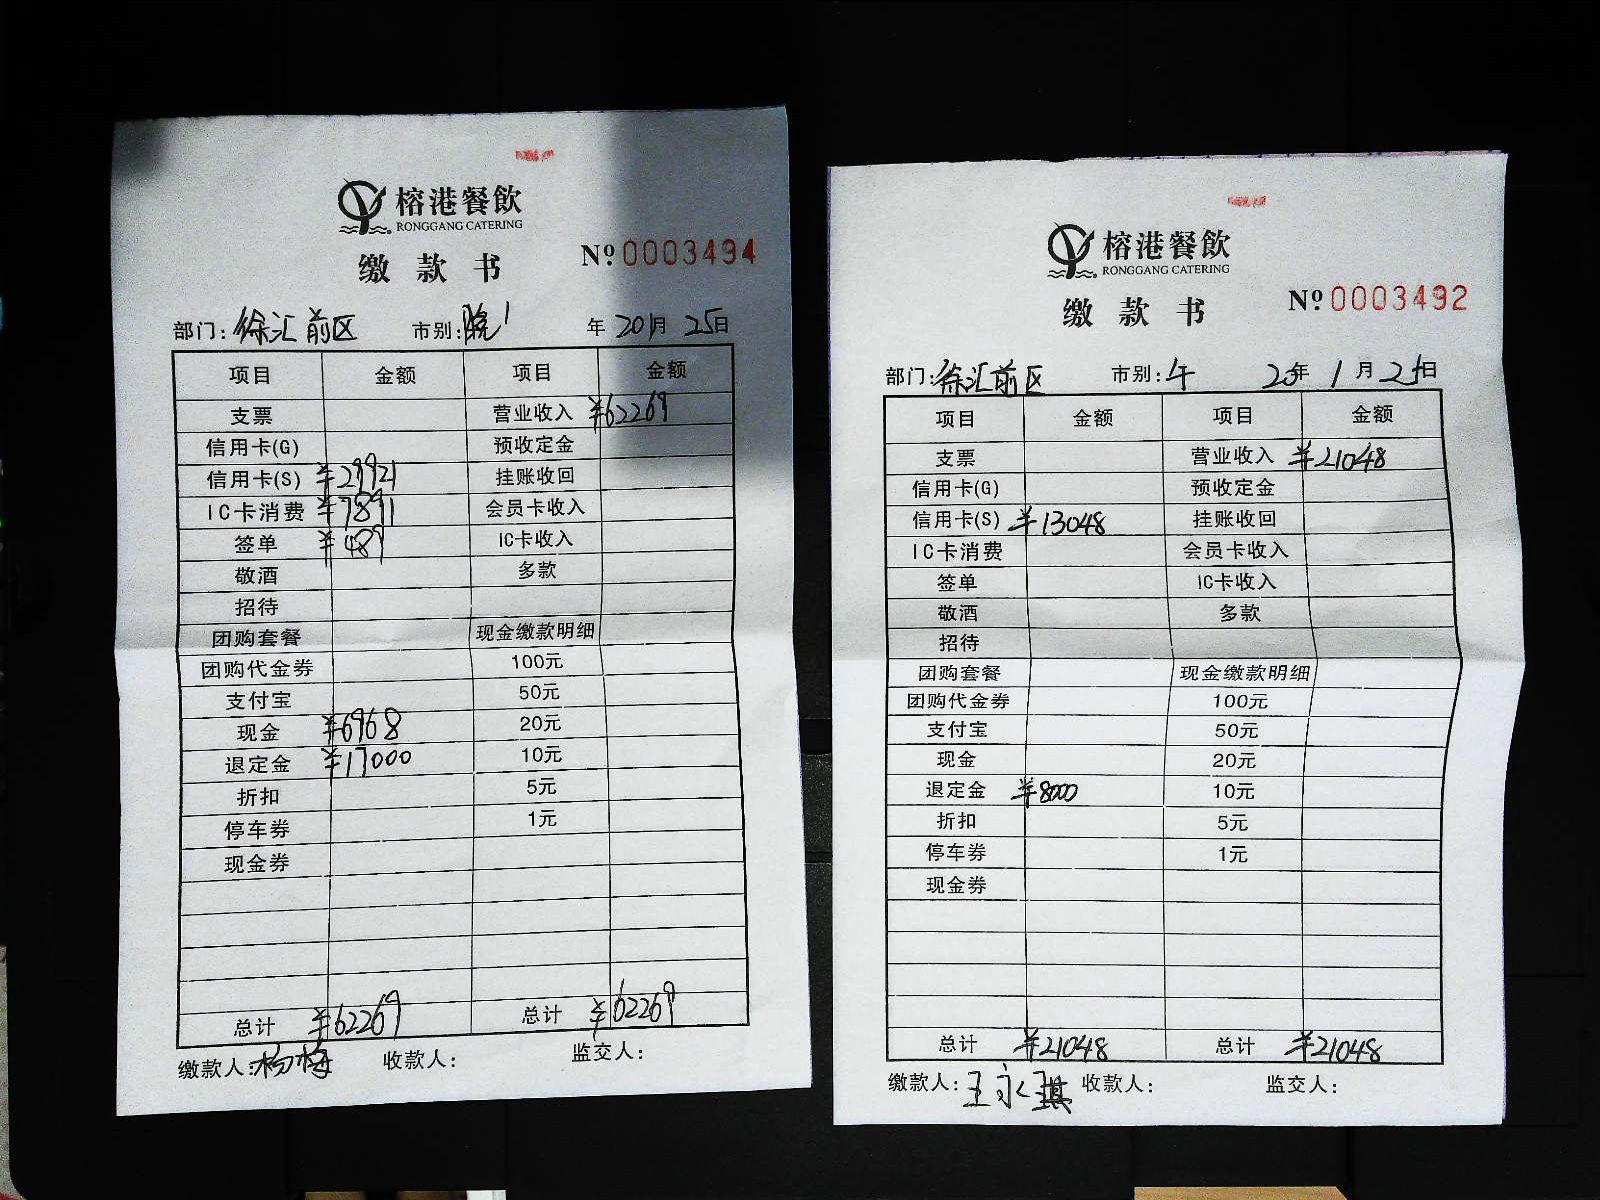 榕港餐飲
RONGGANG CATERING
缴款书 Nº 0003494
部门: 徐汇前区 市别: 晚 年 20 1月 25日
项目 金额 项目 金额
支票 营业收入 ¥62269
信用卡(G) 预收定金
信用卡(S) ¥29921 挂账收回
IC卡消费 ¥7891 会员卡收入
签单 ¥489 IC卡收入
敬酒 多款
招待
团购套餐 现金缴款明细
团购代金券 100元
支付宝 50元
现金 ¥6968 20元
退定金 ¥17000 10元
折扣 5元
停车券 1元
现金券
总计 ¥62269 总计 ¥62269
缴款人: 杨梅 收款人: 监交人:
榕港餐飲
RONGGANG CATERING
缴款书 Nº 0003492
部门: 徐汇前区 市别: 午 20年 1月 25日
项目 金额 项目 金额
支票 营业收入 ¥21048
信用卡(G) 预收定金
信用卡(S) ¥13048 挂账收回
IC卡消费 会员卡收入
签单 IC卡收入
敬酒 多款
招待
团购套餐 现金缴款明细
团购代金券 100元
支付宝 50元
现金 20元
退定金 ¥8000 10元
折扣 5元
停车券 1元
现金券
总计 ¥21048 总计 ¥21048
缴款人: 王永琪 收款人: 监交人: